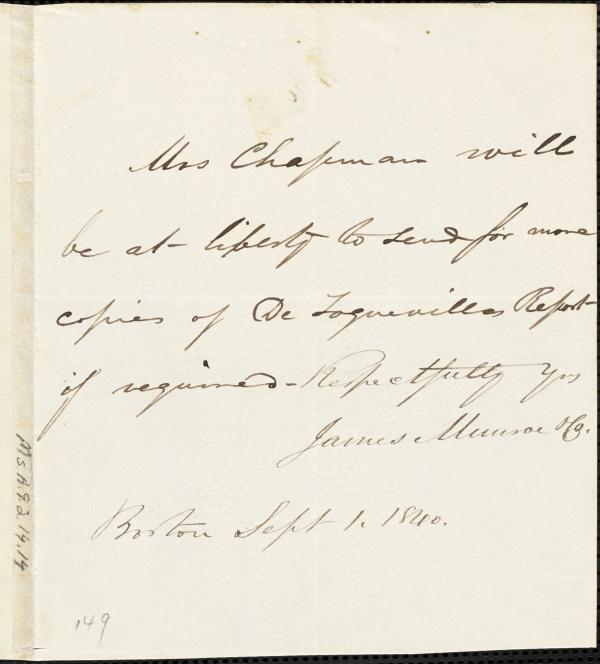 Mrs Chapman will
be at liberty to send for more
copies of De Toquevilles Report
if required - Respectfully Yrs
James Munroe & Co.
Boston Sept 1. 1840.
149
Ms.A.9.2.14.14